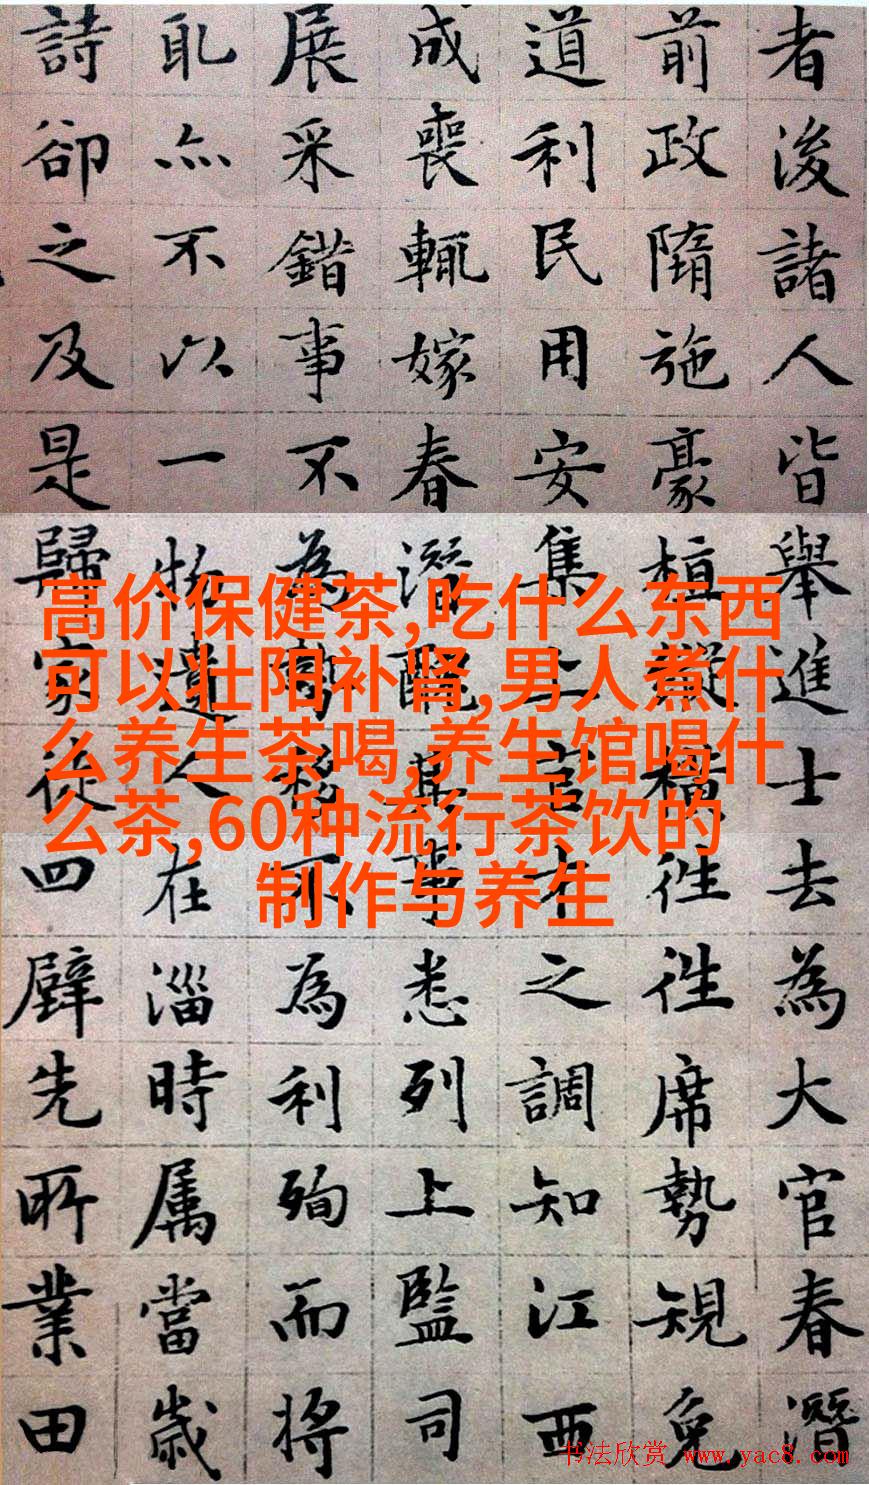 者後諸人皆舉進士去為大官春潛
前政隋施豪植縱橫往往席勢規免
道利民用安集上官才之調知江西
成喪輒嫁春潛其事悉列上監司
展采錯事不為移不為利殉而將
恥亦不以一物遺人在淄時属當歲
詩卻之及是歸家徒四壁先所業田
高价保健茶,吃什么东西
可以壮阳补肾,男人煮什
么养生茶喝,养生馆喝什
么茶,60种流行茶饮的
制作与养生
书法欣赏 www.yac8.com